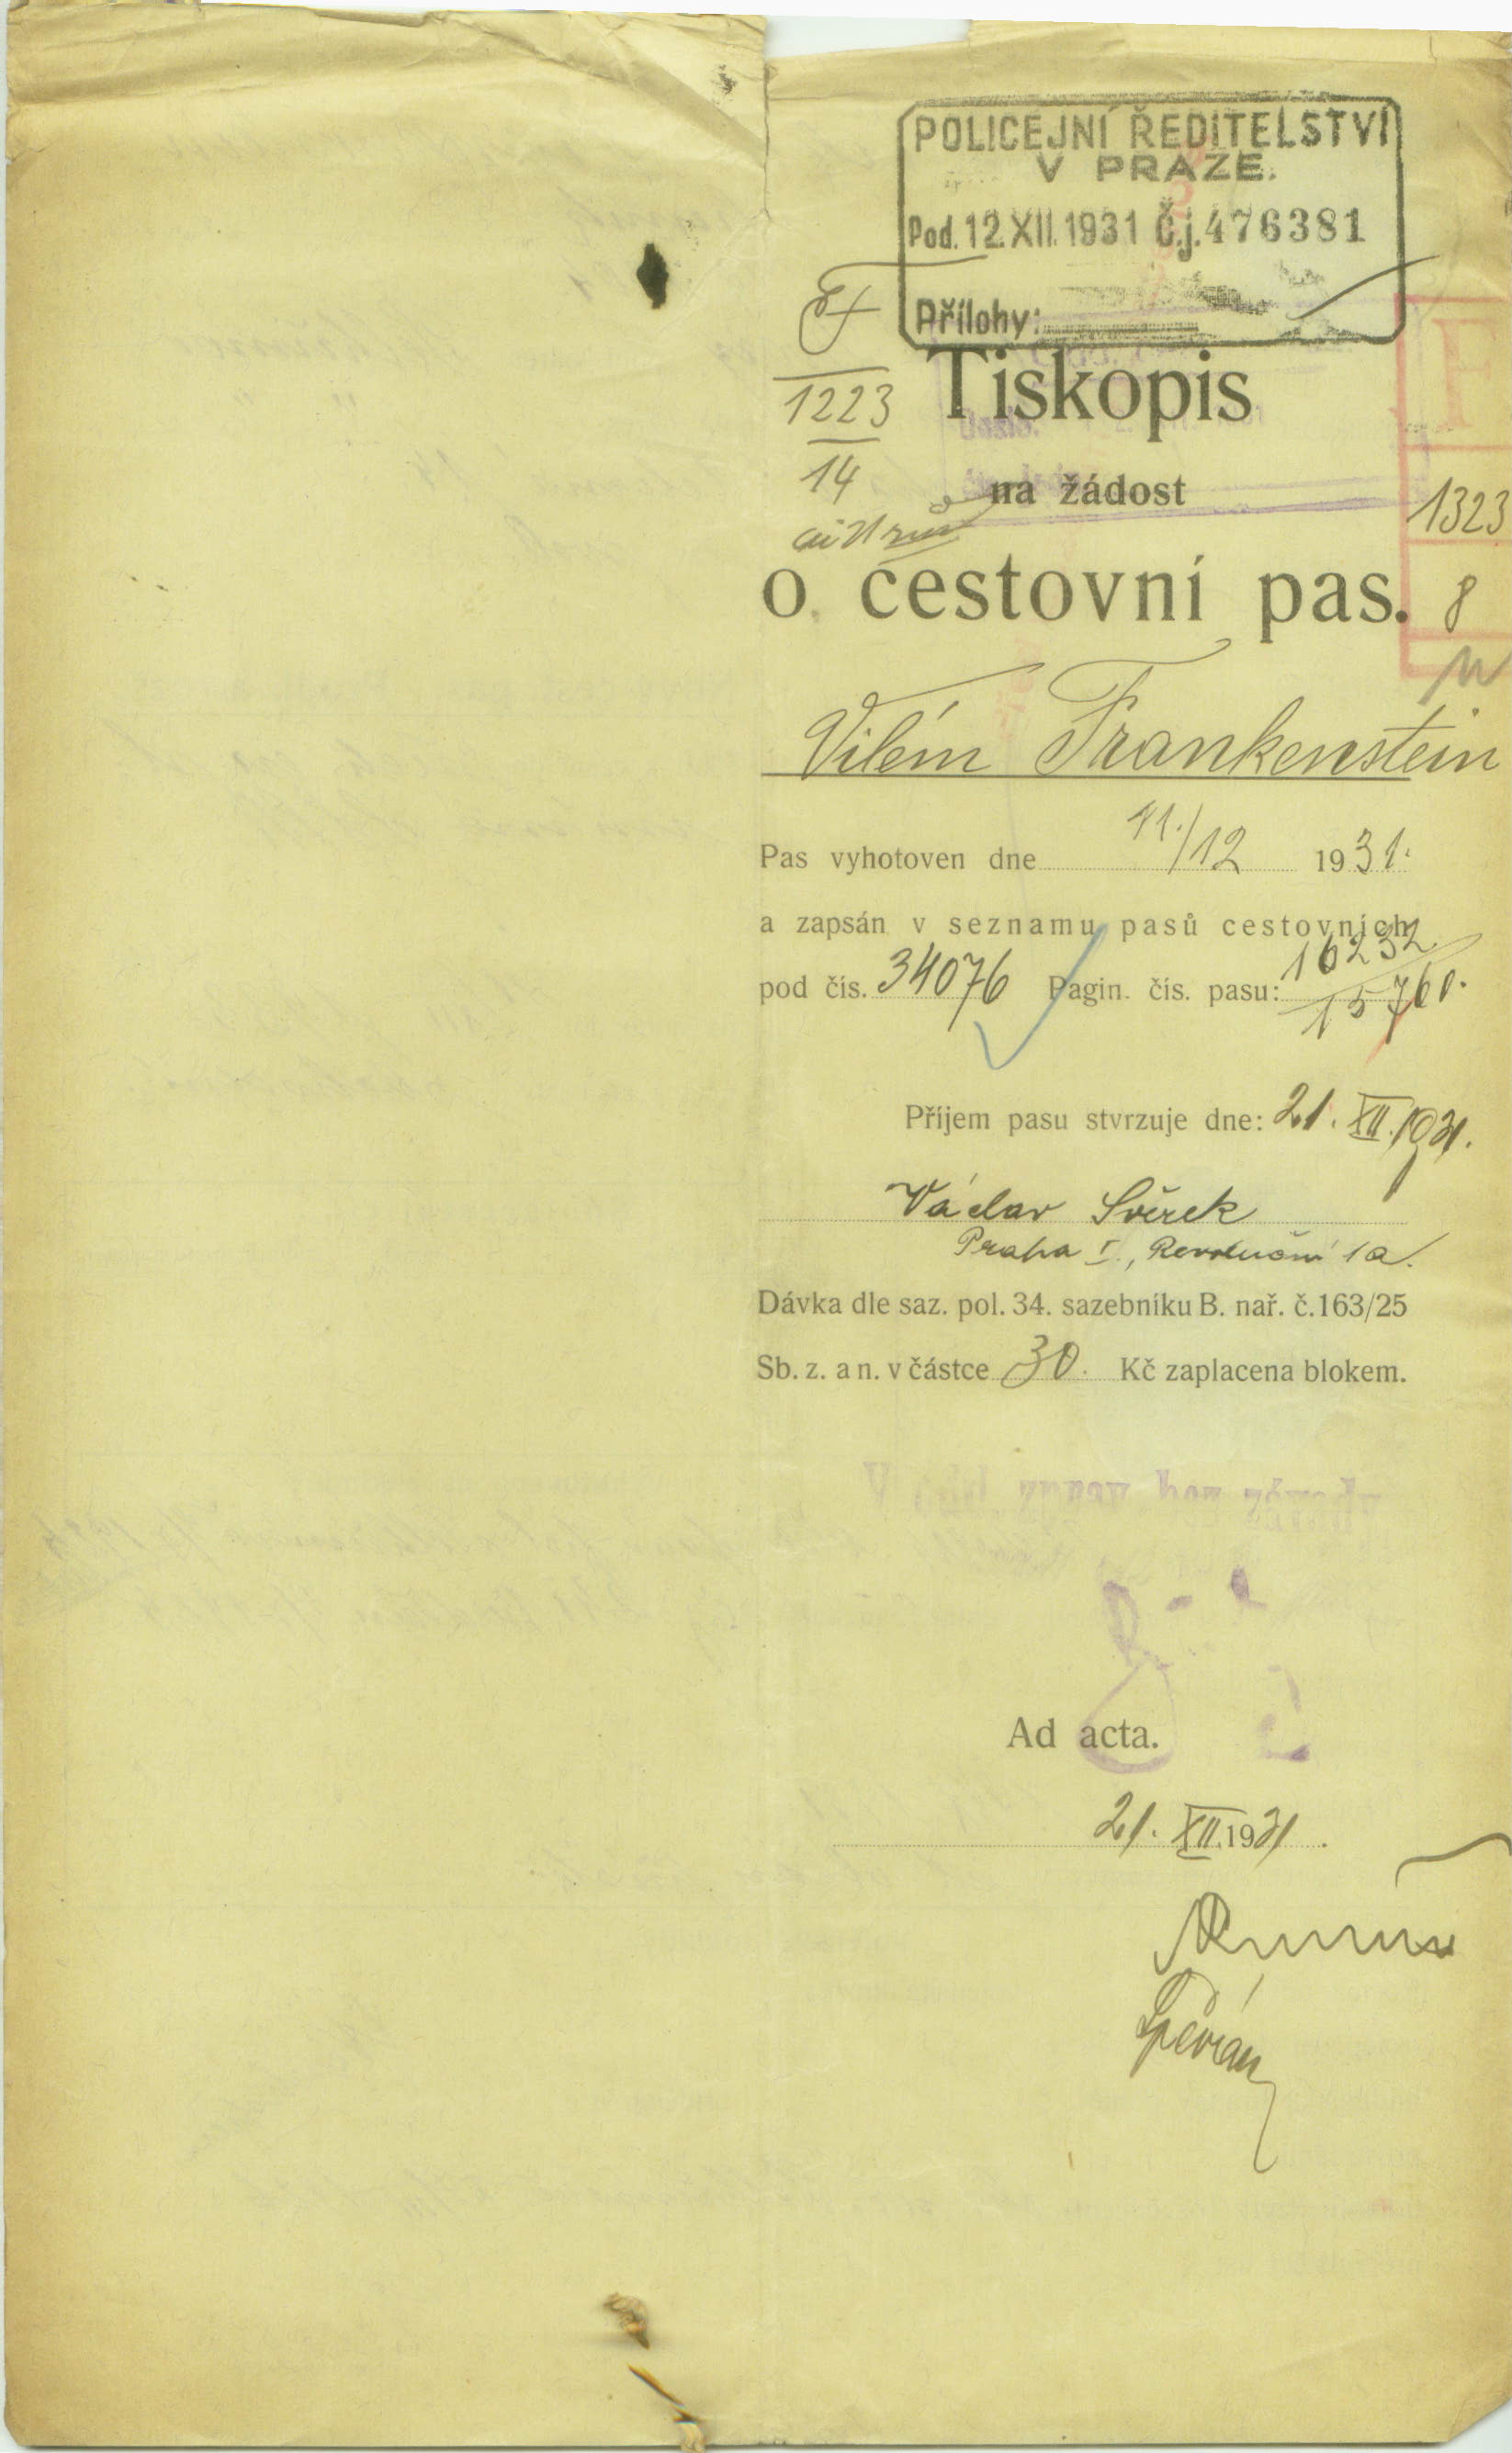 POLICEJNÍ ŘEDITELSTVÍ
V PRAZE.
Pod. 12.XII.1931 Č.j. 476381
Přílohy:
1223
14
Tiskopis
na žádost
o cestovní pas.
F
1323
8
Vilém Frankenstein
Pas vyhotoven dne 11./12 1931.
a zapsán v seznamu pasů cestovních
pod čís. 34076 Pagin. čís. pasu: 16232
15760.
Příjem pasu stvrzuje dne: 21. XII. 1931.
Václav Svěrek
Praha I., Revoluční 1a.
Dávka dle saz. pol. 34. sazebníku B. nař. č. 163/25
Sb. z. a n. v částce 30. Kč zaplacena blokem.
zprav bez závady
Ad acta.
21. XII. 1931.